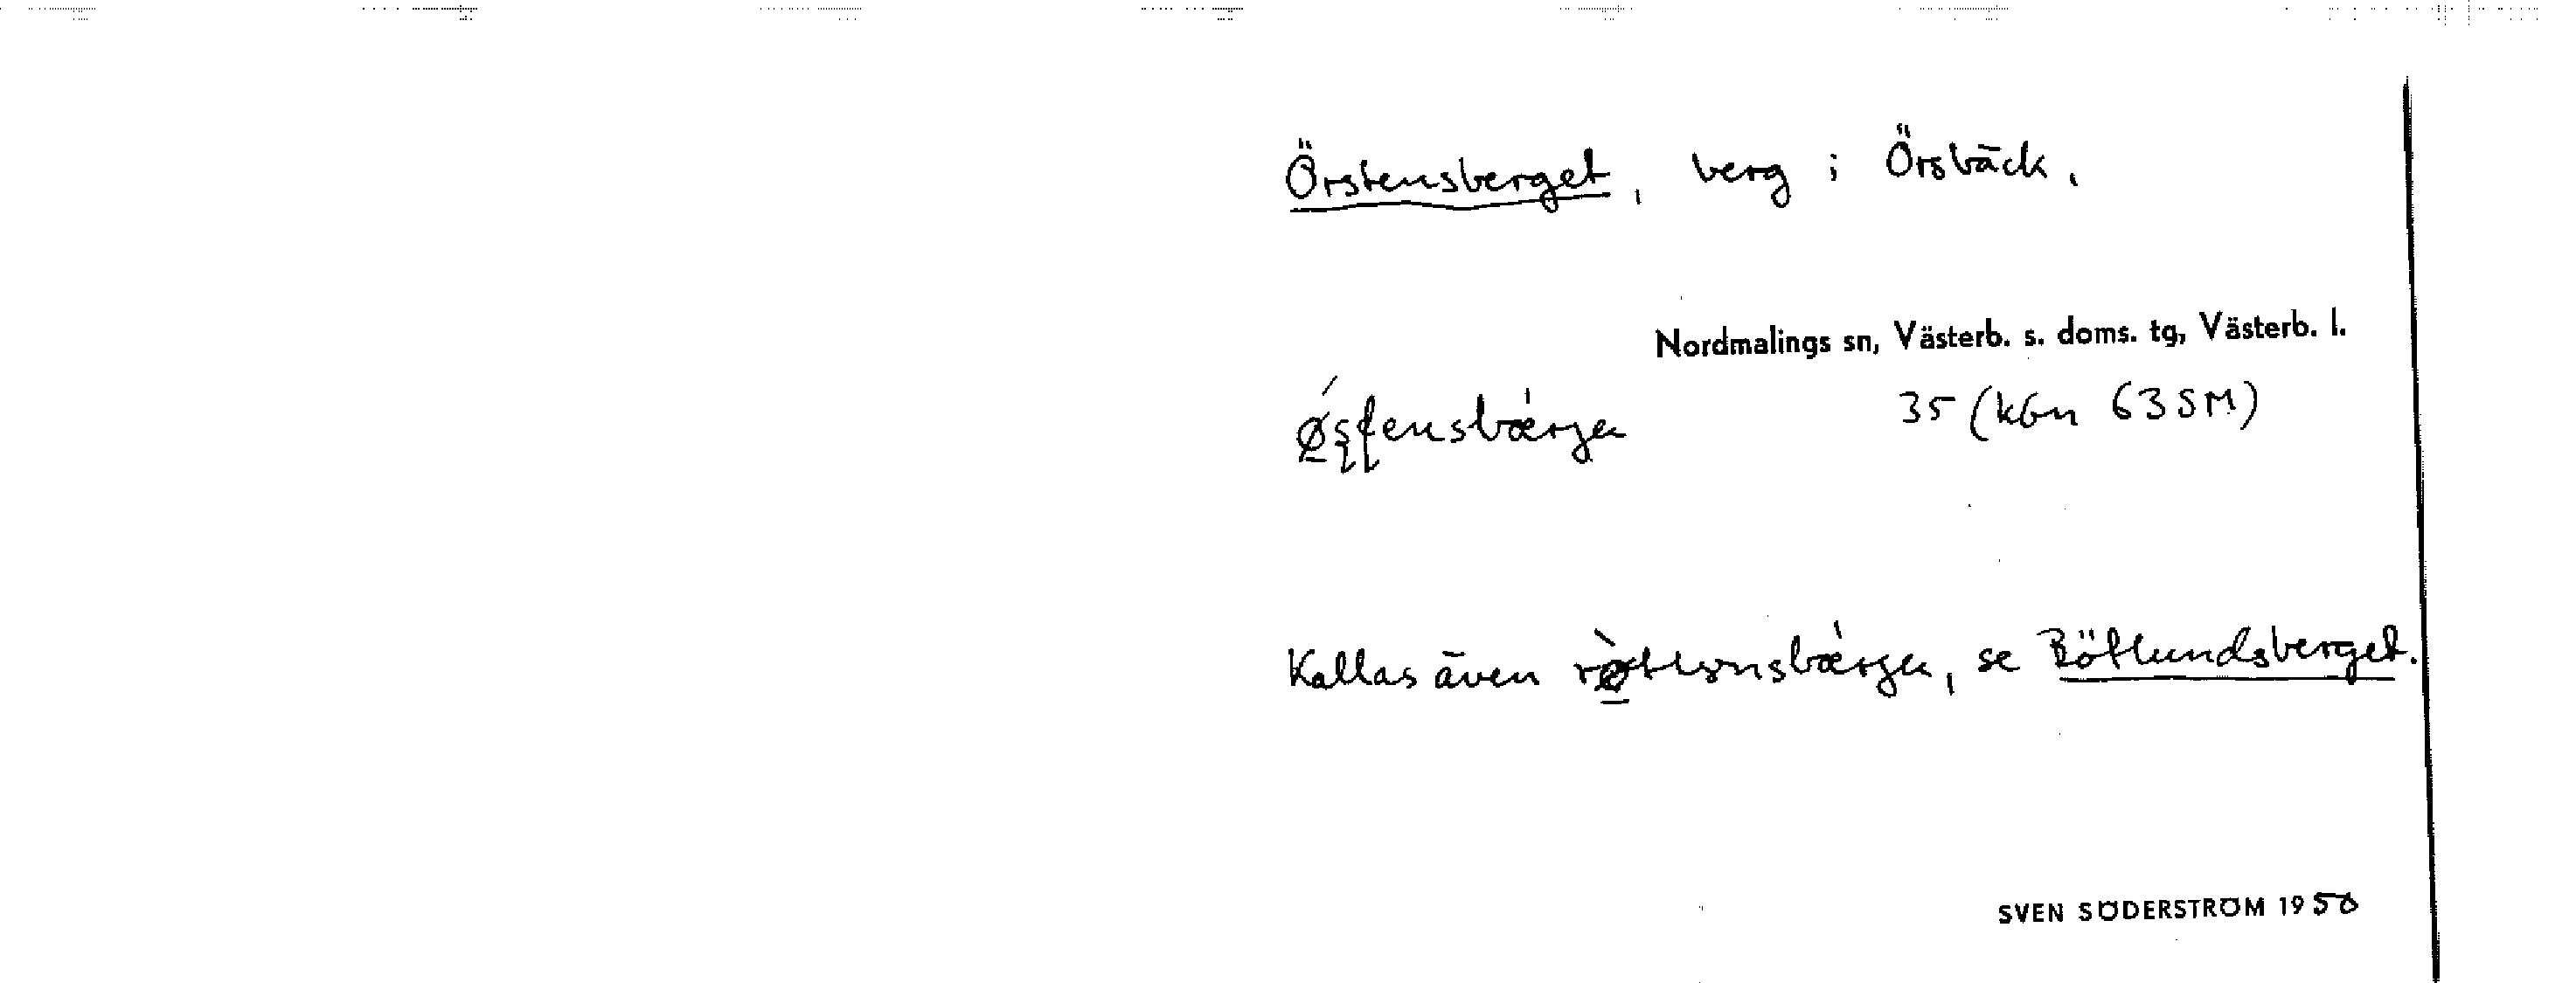 Örstensberget, berg i Örsbäck.
Nordmalings sn, Västerb. s. doms. tg, Västerb. l.
35 (kGn 63 SM)
Kallas även, se Bötlundsberget.
SVEN SÖDERSTRÖM 1950